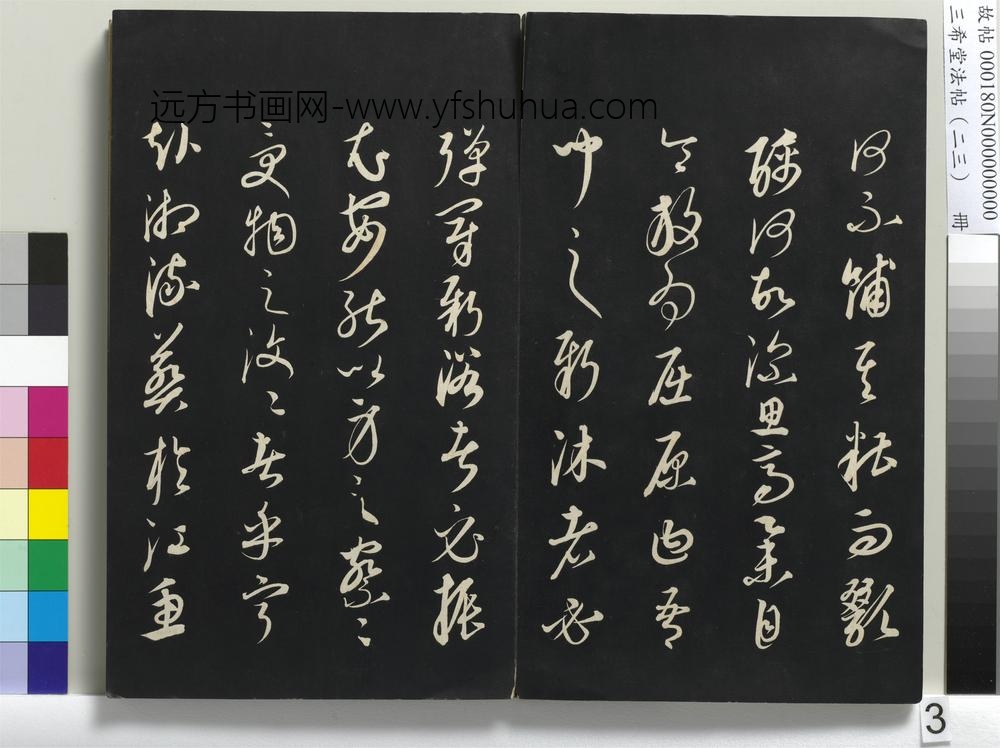 何不餔其糟而歠
醨何故深思高舉自
令放為屈原曰吾
聞之新沐者必
彈冠新浴者必振
衣安能以身之察〻
受物之汶〻者乎寧
赴湘流葬於江魚
远方书画网-www.yfshuhua.com
故帖 000180N000000000
三希堂法帖（二三） 冊
3